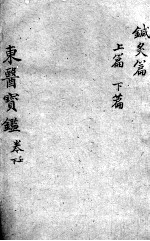 鍼灸篇
上篇 下篇
東醫寶鑑